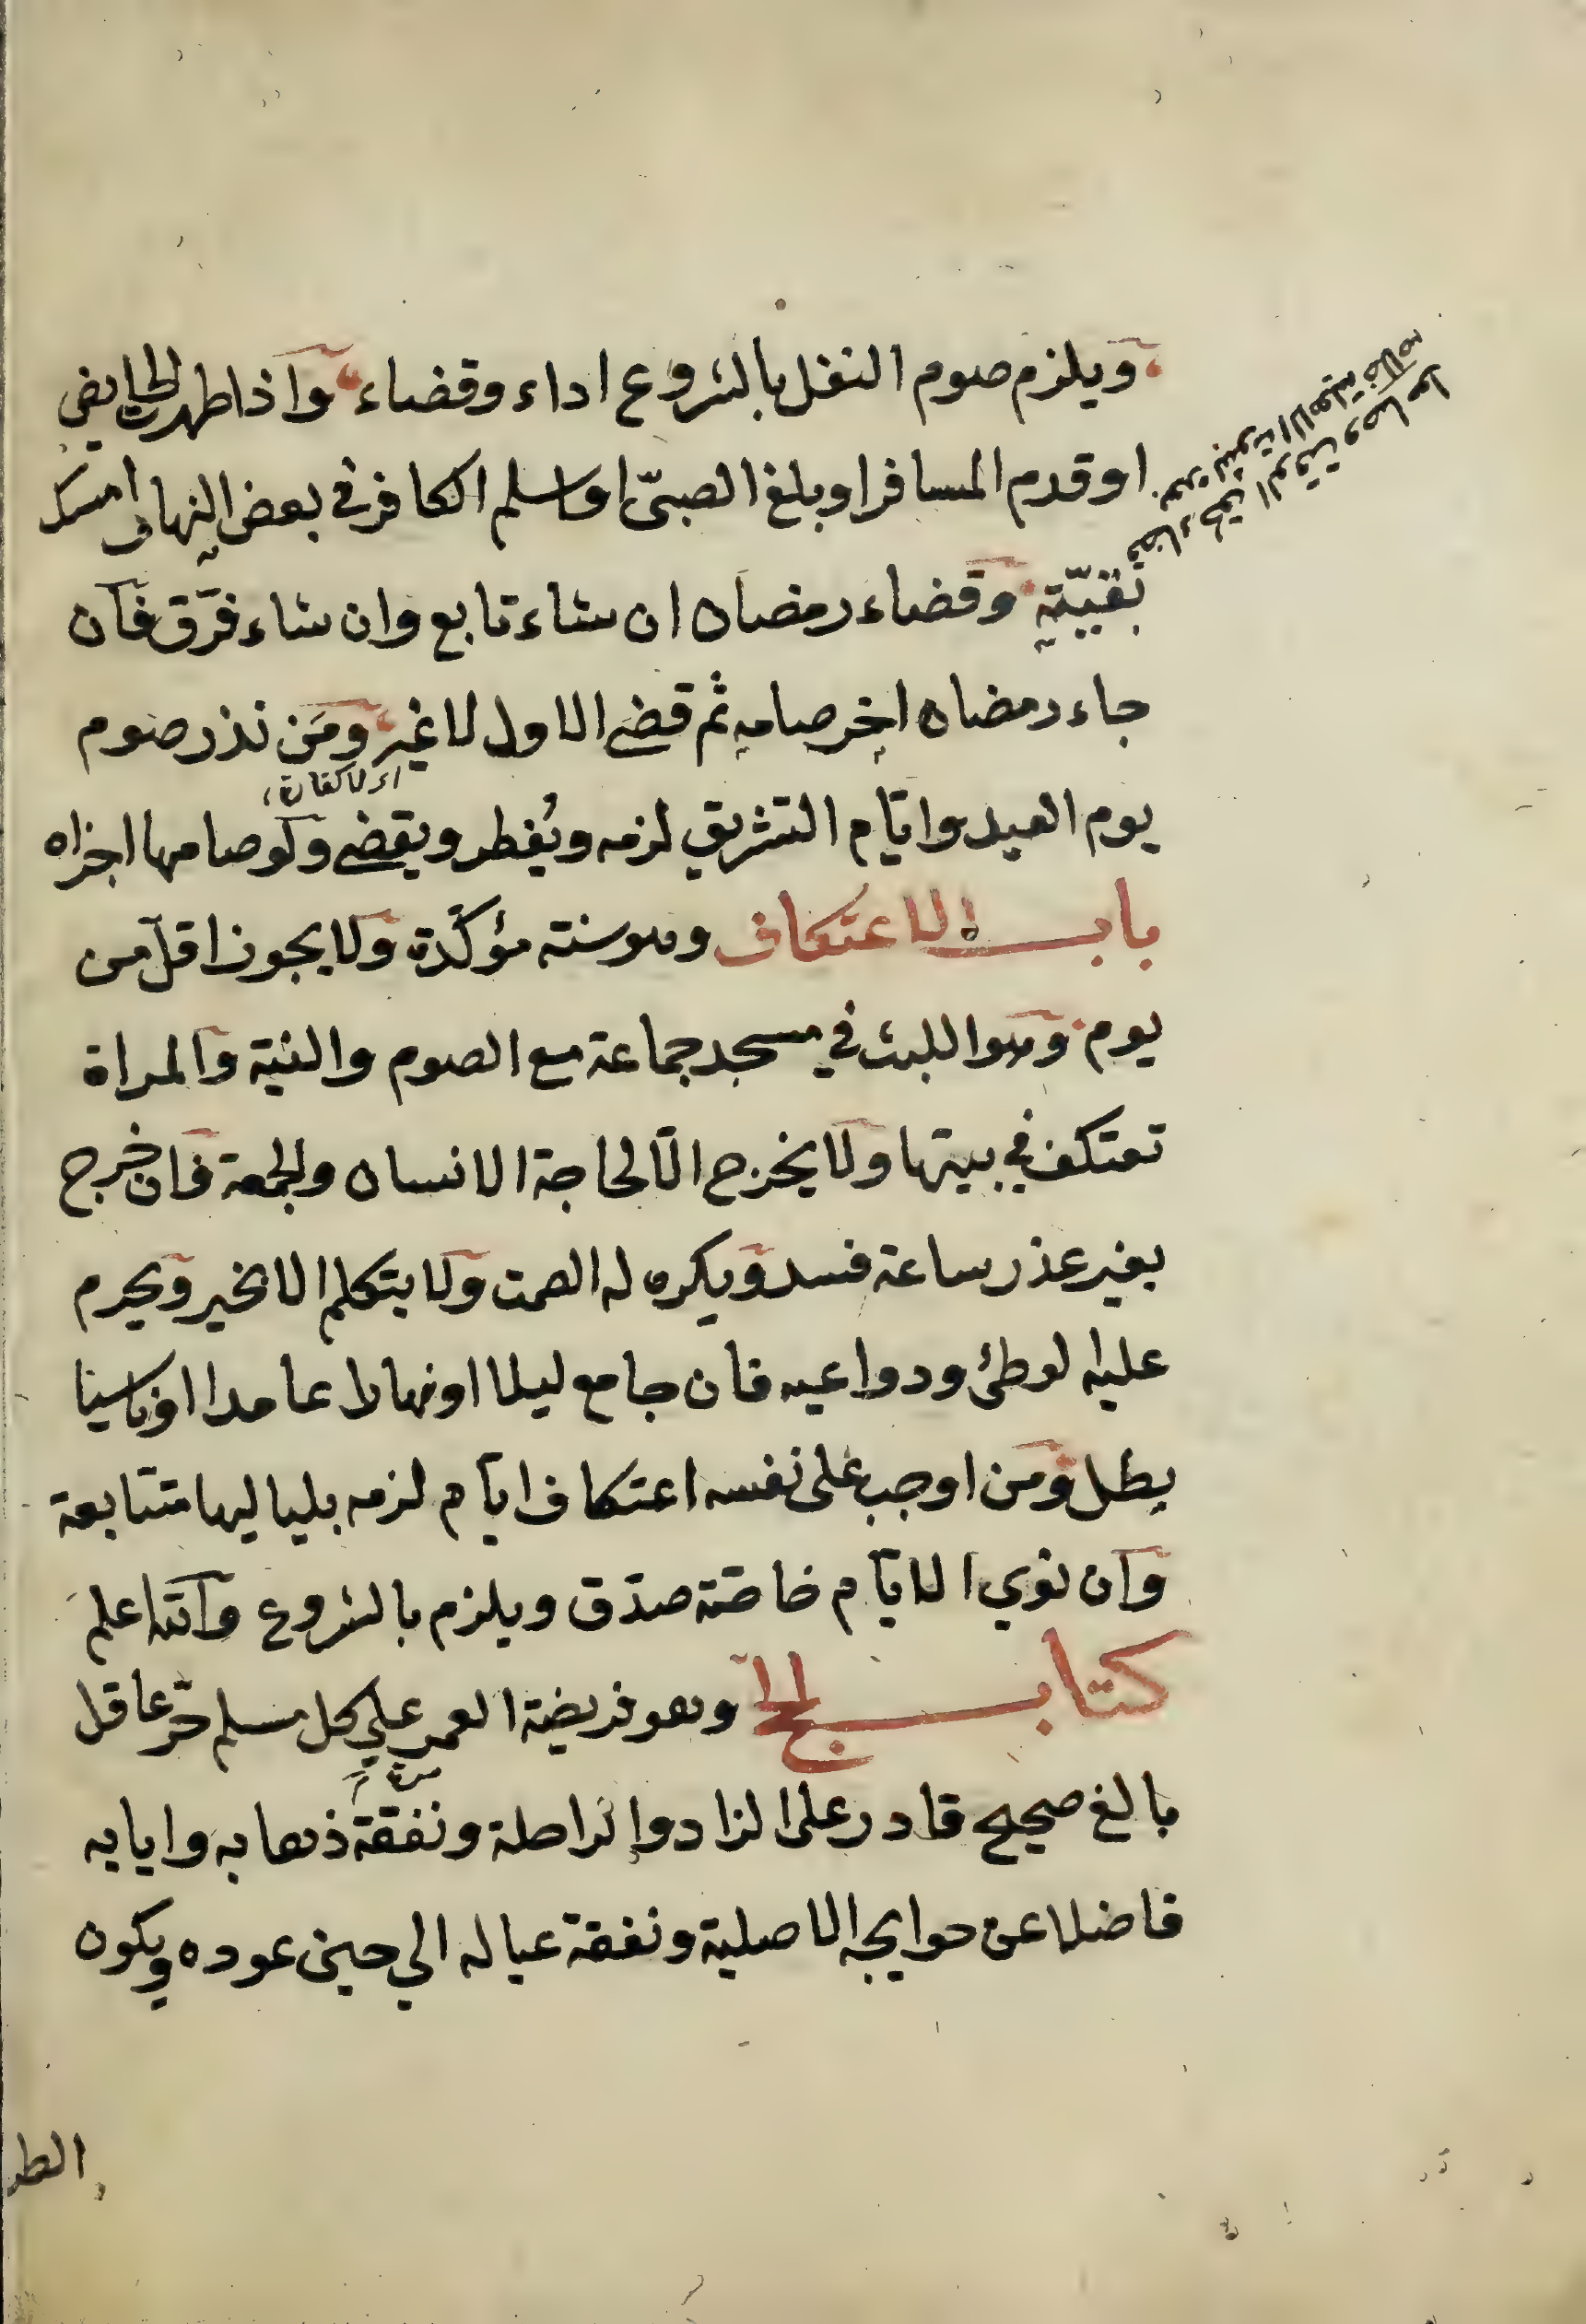 ويلزم صوم النفل بالشروع اداء وقضاء واذا طهرت الحايض
او قدم المسافر او بلغ الصبيّ او اسلم الكافر في بعض النهار امسك
بقيّته وقضاء رمضان ان شاء تابع وان شاء فرّق فان
جاء رمضان اخر صامه ثم قضي الاول لا غير ومَن نذر صوم
اى لا كفارة
يوم العيد وايّام التشريق لزمه ويُفطر ويقضي ولو صامها اجزاه
باب الاعتكاف وهو سنة مؤكّدة ولا يجوز اقل من
يوم وهو اللبث في مسجد جماعة مع الصوم والنية والمراة
تعتكف في بيتها ولا يخرج الّا لحاجة الانسان والجمعة فان خرج
بغير عذر ساعة فسد ويكره له الصمت ولا يتكلم الا بخير ويحرم
عليه الوطئ ودواعيه فان جامع ليلا او نهارا عامدا او ناسيا
بطل ومن اوجب على نفسه اعتكاف ايّام لزمه بلياليها متتابعة
وان نوي الايّام خاصّة صدّق ويلزم بالشروع والله اعلم
كتاب الحج وهو فريضة العمر علي كل مسلم حرّ عاقل
مرة
بالغ صحيح قادر على الزاد والراحلة ونفقة ذهابه وايابه
فاضلا عن حوايجه الاصلية ونفقة عياله الي حين عوده ويكون
الطر